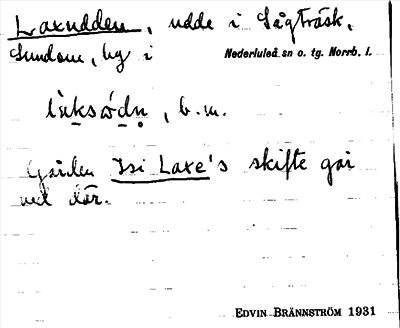 Laxudden, udde i Sågträsk,
Sundom, by i Nederluleå sn o. tg. Norrb. l.
b. m.
Gården Isi Laxe's skifte går
ned där.
EDVIN BRÄNNSTRÖM 1931